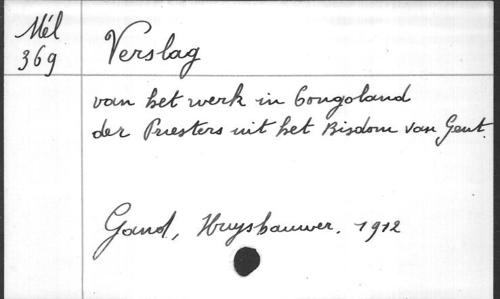 Mél
369
Verslag
van het werk in Congoland
der Priesters uit het Bisdom van Gent.
Gand, Huyshauwer. 1912